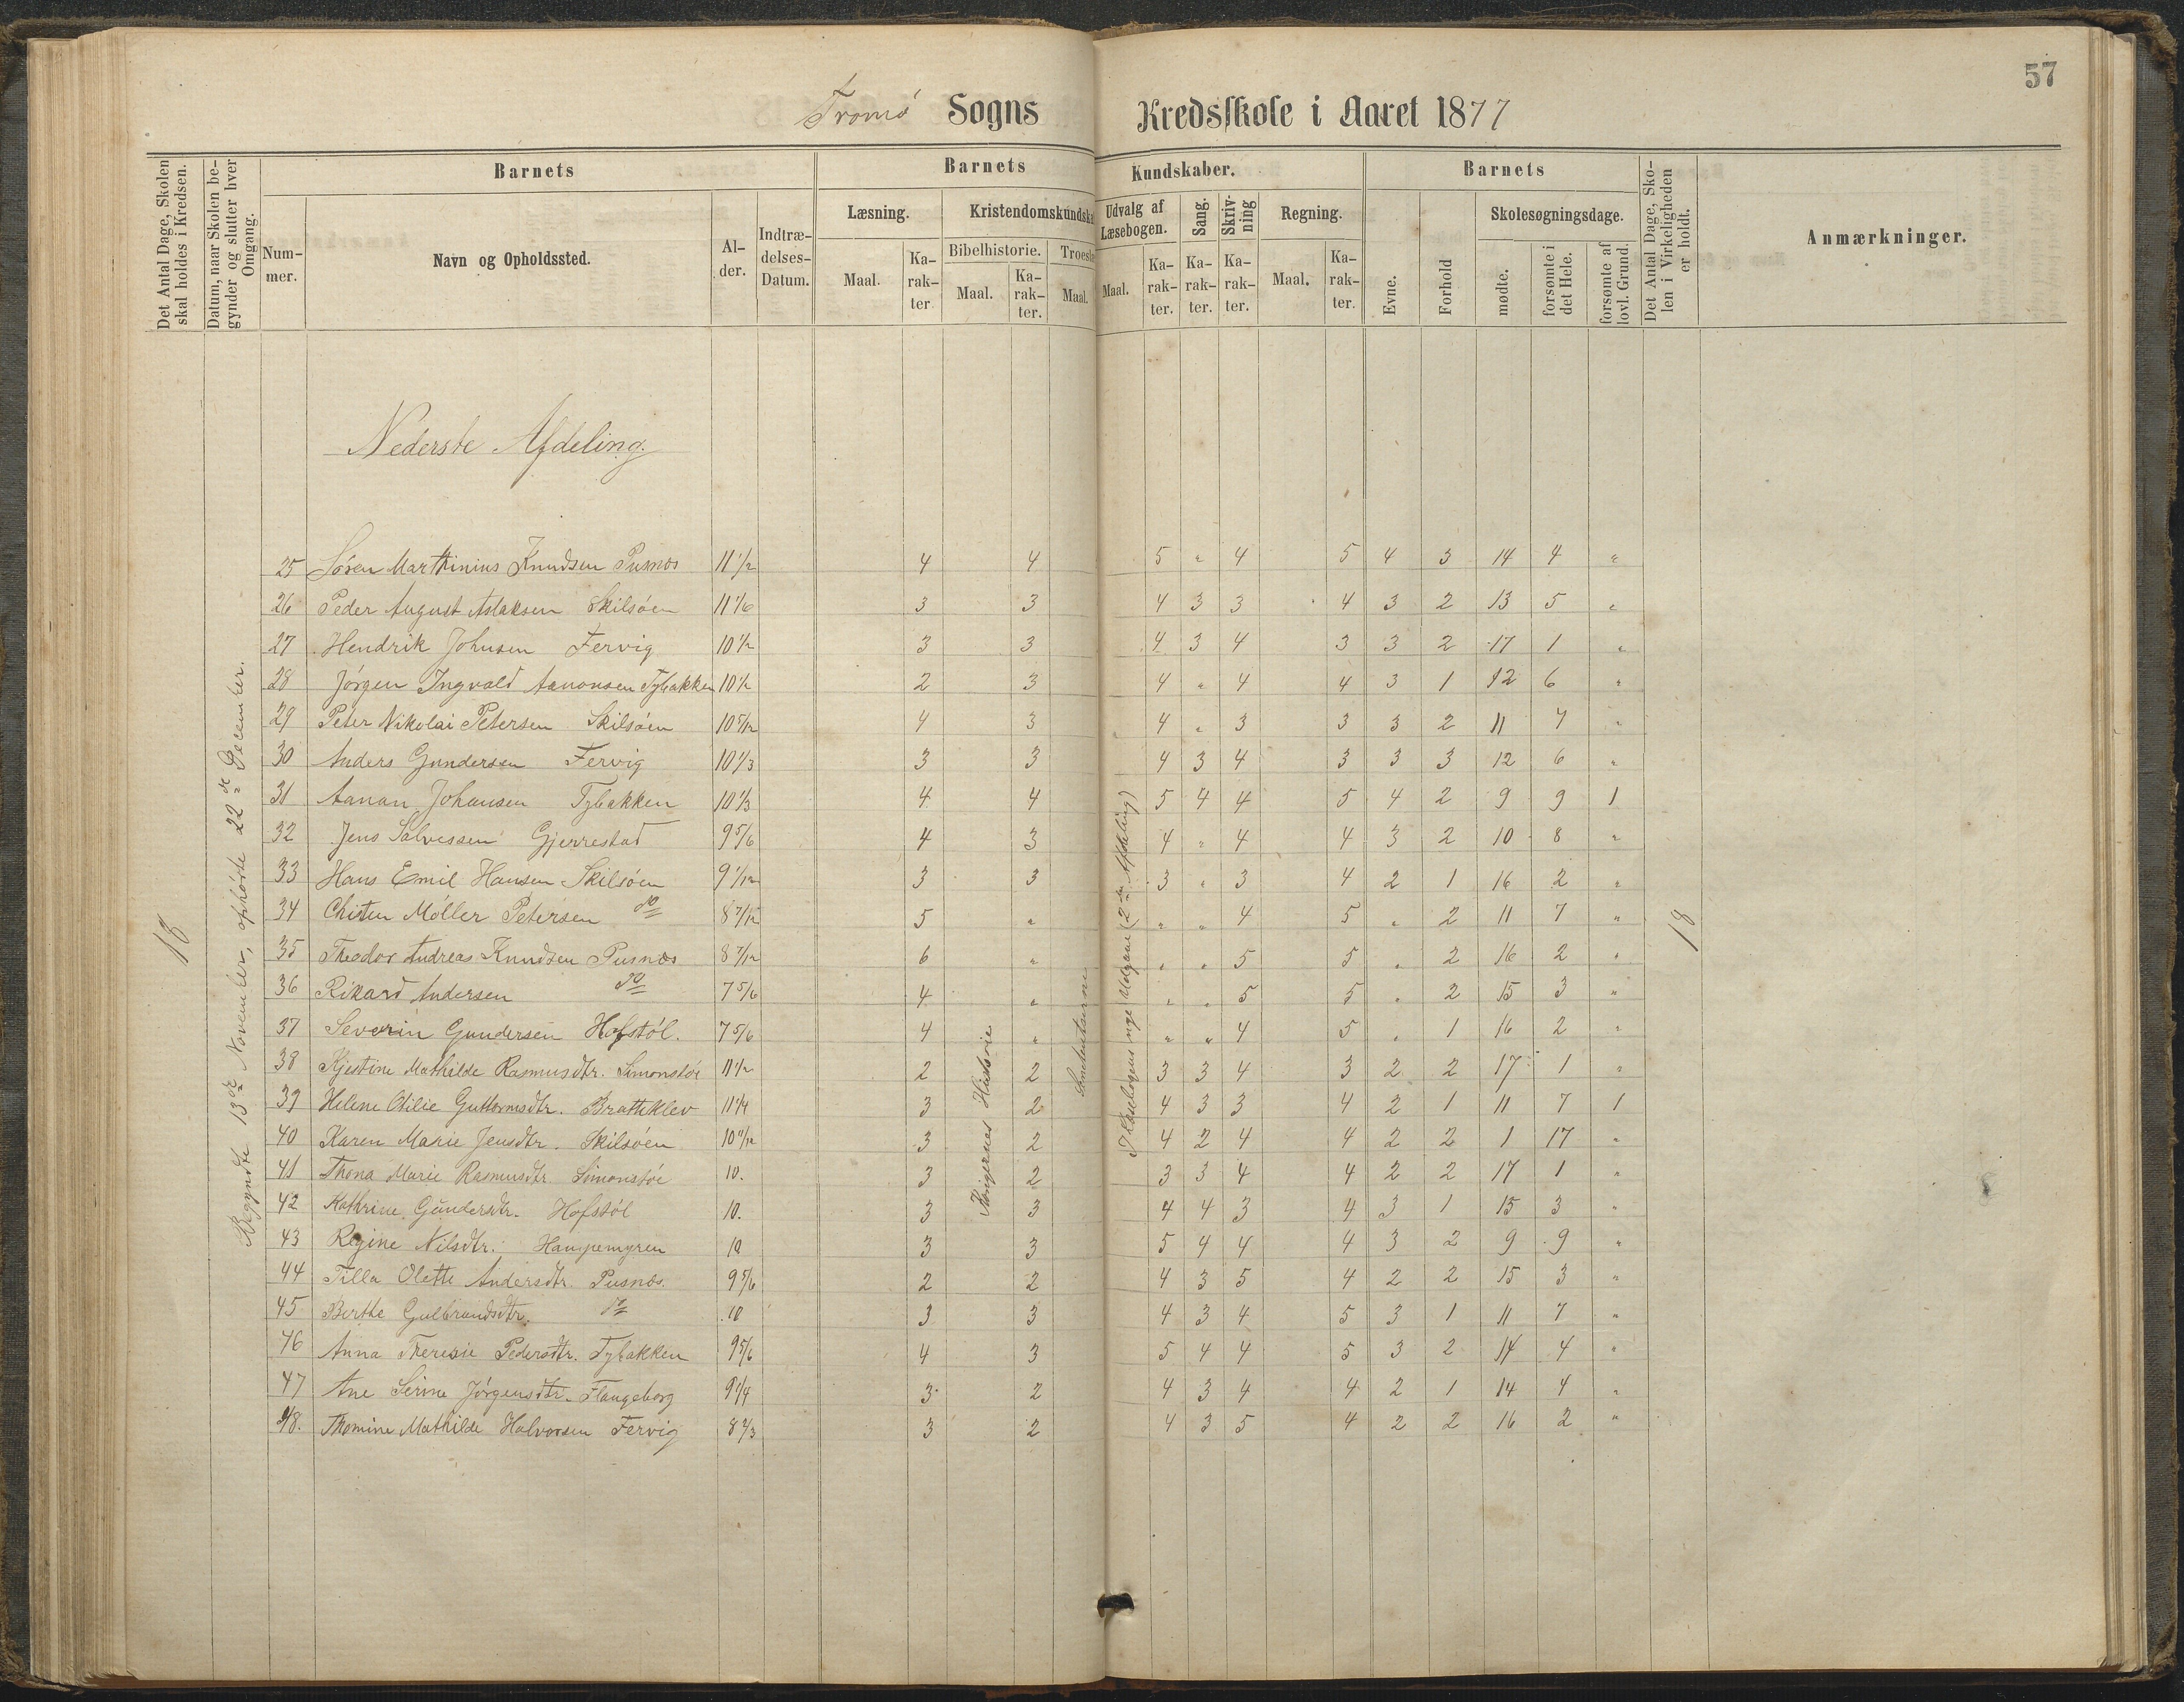 57
Tromø Sogns Kredsskole i Aaret 1877
Det Antal Dage, Skolen skal holdes i Kredsen.
Datum, naar Skolen begynder og slutter hver Omgang.
Barnets
Nummer.
Navn og Opholdssted.
Alder.
Indtrædelses-Datum.
Barnets Kundskaber.
Læsning.
Maal.
Karakter
Kristendomskundska
Bibelhistorie.
Maal.
Karakter.
Troeslæ
Maal.
Udvalg af Læsebogen.
Maal.
Karakter.
Sang.
Karakter.
Skrivning
Karakter.
Regning.
Maal.
Karakter.
Barnets
Evne.
Forhold
Skolesøgningsdage.
mødte.
forsømte i det Hele.
forsømte af lovl. Grund.
Det Antal Dage, Skolen i Virkeligheden er holdt.
Anmærkninger.
Nederste Afdeling.
18
Begyndte 13de November, ophørte 22de December.
25 Søren Marthinius Knudsen Pusnæs 11 1/2 4 4 5 " 4 5 4 3 14 4 "
26 Peder August Aslaksen Skilsøen 11 1/6 3 3 4 3 3 4 3 2 13 5 "
27 Hendrik Johnsen Fervig 10 1/2 3 3 4 3 4 3 3 2 17 1 "
28 Jørgen Ingvald Aanonsen Tybakken 10 1/2 2 3 4 " 4 4 3 1 12 6 "
29 Peter Nikolai Petersen Skilsøen 10 5/12 4 3 4 " 3 3 3 2 11 7 "
30 Anders Gundersen Fervig 10 1/3 3 3 4 3 4 3 3 3 12 6 "
31 Aanan Johansen Tybakken 10 1/3 4 4 5 4 4 5 4 2 9 9 1
32 Jens Salvessen Gjerrestad 9 5/6 4 3 4 " 4 4 3 2 10 8 "
33 Hans Emil Hansen Skilsøen 9 1/12 3 3 3 " 3 4 2 1 16 2 "
34 Chisten Møller Petersen do 8 7/12 5 " " " 4 5 " 2 11 7 "
35 Theodor Andreas Knudsen Pusnæs 8 7/12 6 " " " 5 5 " 2 16 2 "
36 Rikard Andersen do 7 5/6 4 " " " 5 5 " 2 15 3 "
37 Severin Gundersen Hofstøl. 7 5/6 4 " " " 4 5 " 1 16 2 "
38 Kjestine Mathilde Rasmusdtr. Simonstøe 11 1/2 2 2 3 3 4 3 2 2 17 1 "
39 Helene Otilie Guttormsdtr. Bratteklev 11 1/4 3 2 4 3 3 4 2 1 11 7 1
40 Karen Marie Jensdtr. Skilsøen 10 11/12 3 2 4 2 4 4 2 2 1 17 "
41 Thona Marie Rasmusdtr Simonstøe 10. 3 2 3 3 4 4 2 2 17 1 "
42 Kathrine Gundersdtr. Hofstøl 10. 3 3 4 4 3 4 3 1 15 3 "
43 Regine Nilsdtr. Hampemyren 10 3 3 5 4 4 4 3 2 9 9 "
44 Tilla Olette Andersdtr Pusnæs. 9 5/6 2 2 4 3 5 4 2 2 15 3 "
45 Berthe Gulbrandsdtr. do 10 3 3 4 3 4 5 3 1 11 7 "
46 Anna Theresie Pedersdtr. Tybakken 9 5/6 4 3 5 4 4 5 3 2 14 4 "
47 Ane Serine Jørgensdtr. Flangeborg 9 1/4 3 2 4 3 4 4 2 1 14 4 "
48. Thomine Mathilde Halvorsen Fervig 8 2/3 3 2 4 3 5 4 2 2 16 2 "
Kongernes Historie
(2den Afdeling)
18